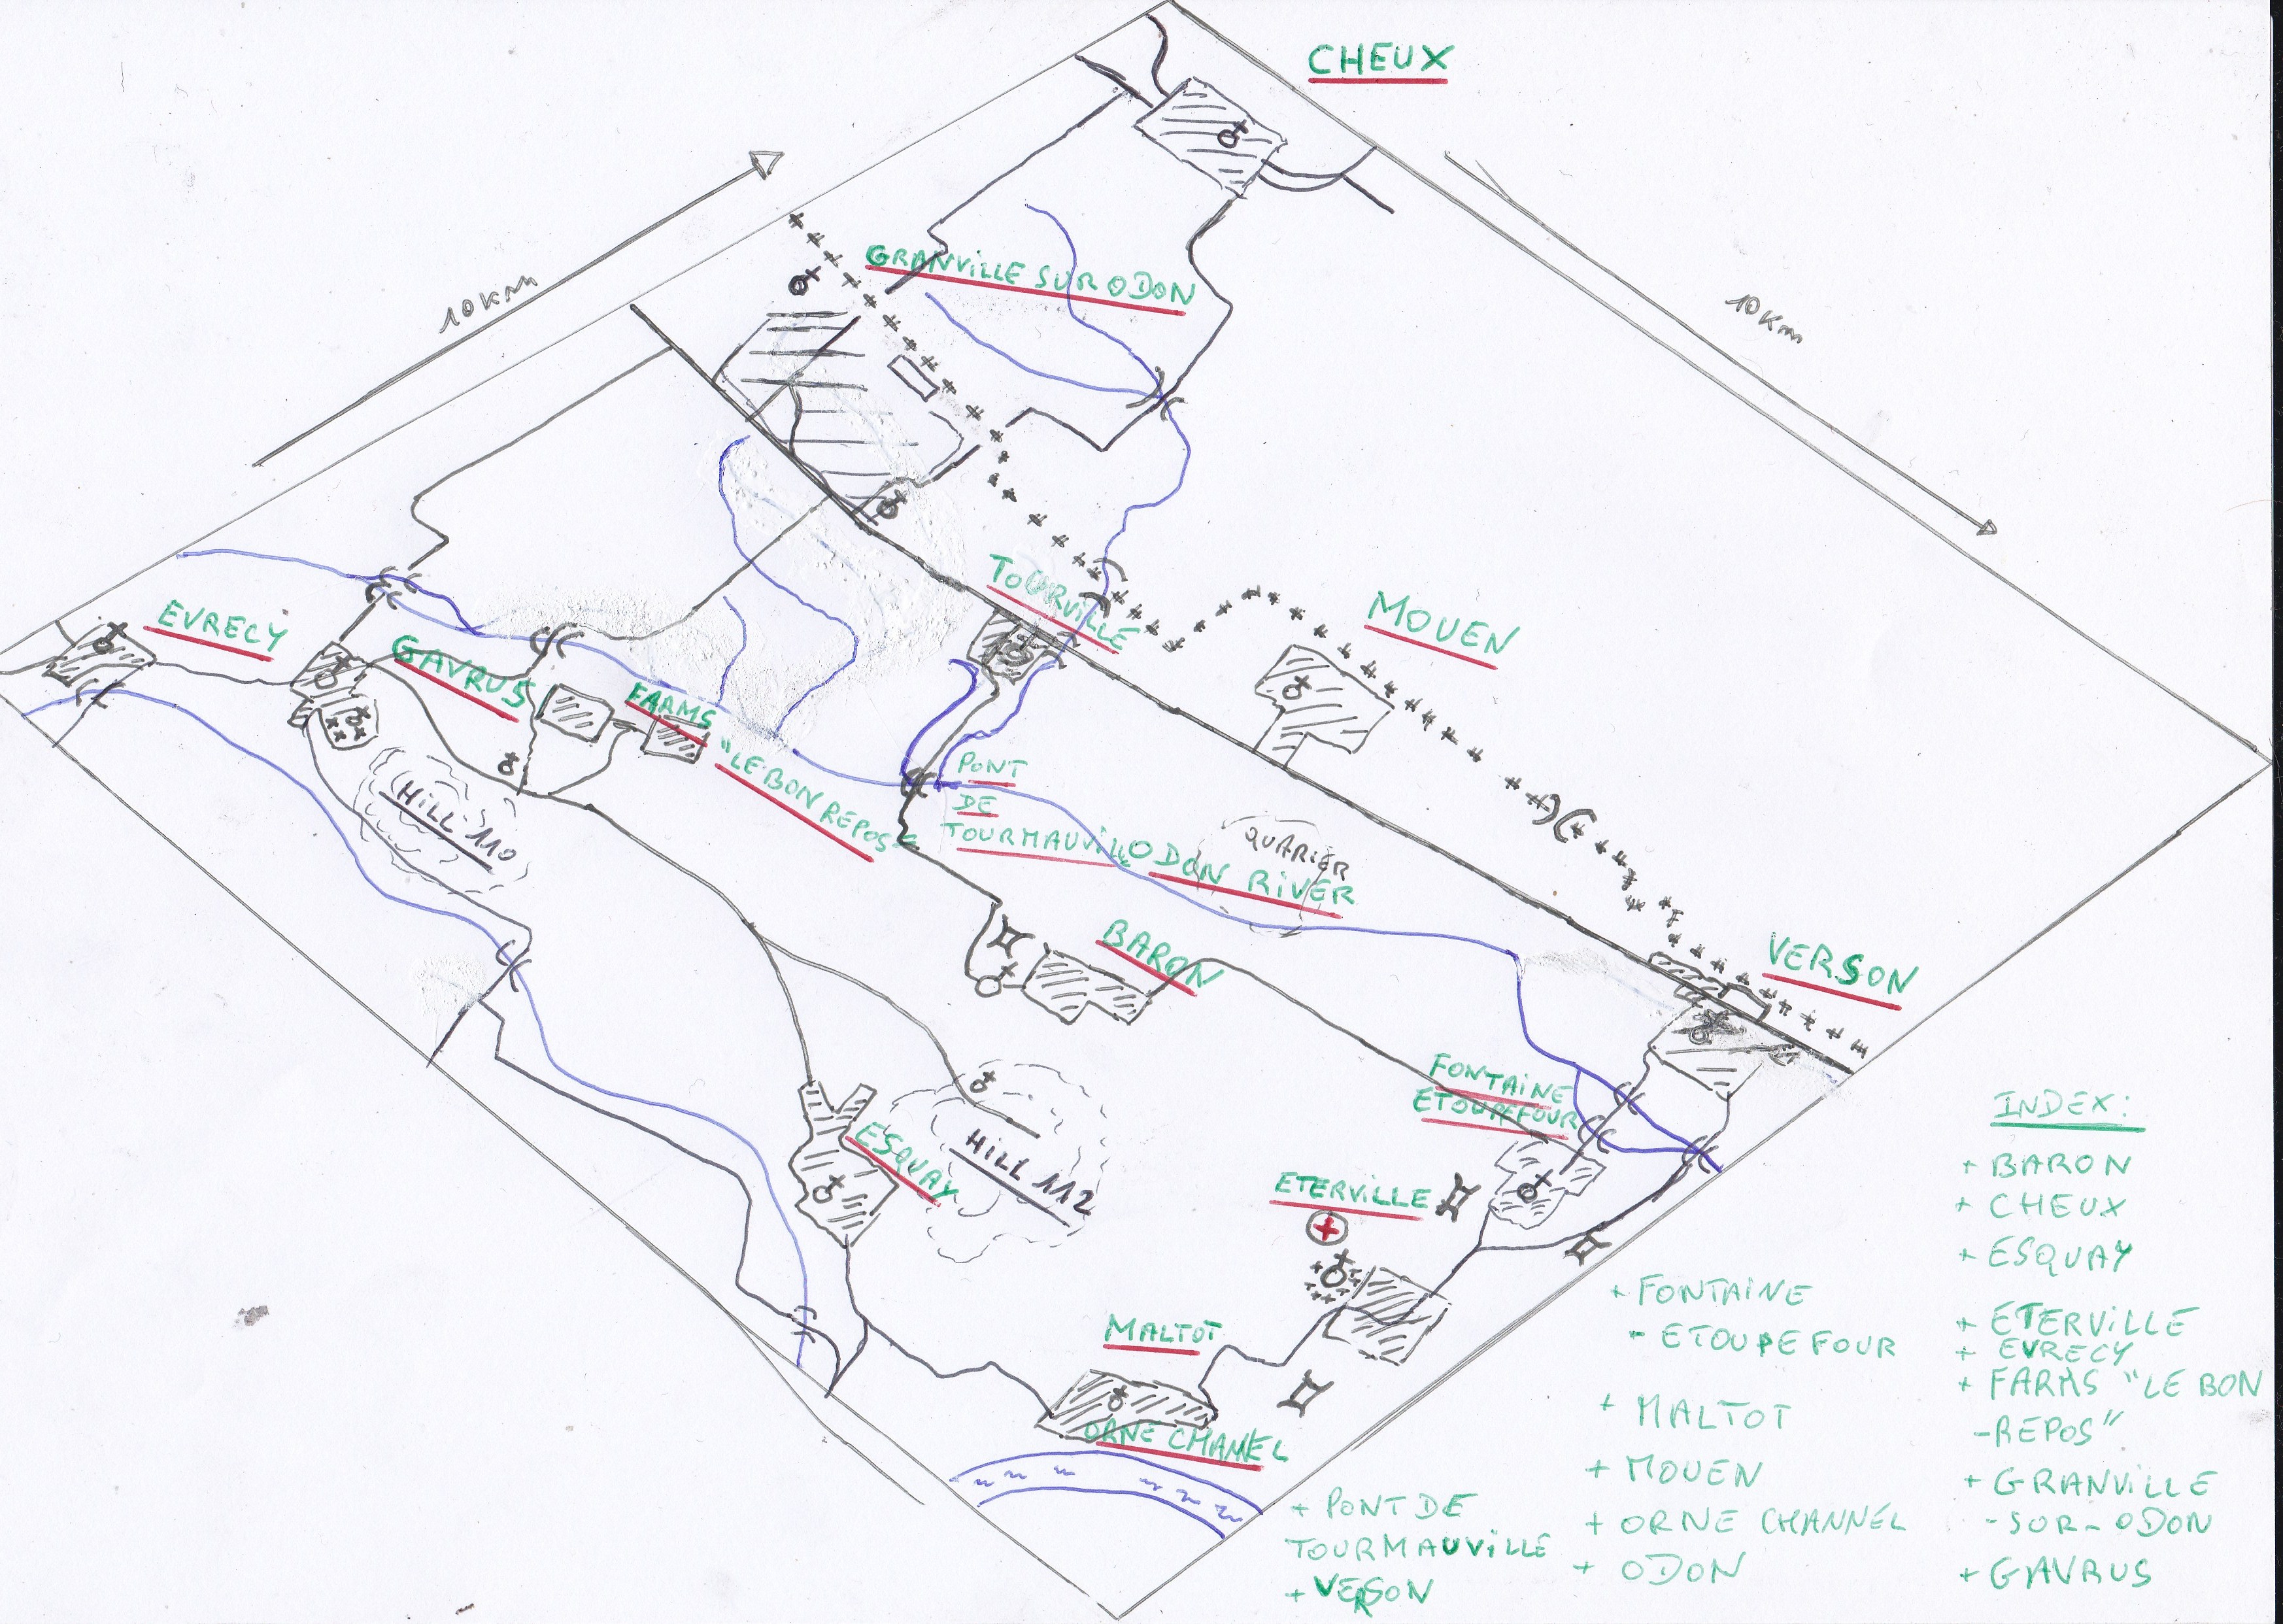 CHEUX
10Km
10Km
GRANVILLE SUR ODON
TOURVILLE
MOUEN
EVRECY
GAVRUS
FARMS
"LE BON REPOS"
HILL 110
PONT
DE
TOURMAUVILL
ODON RIVER
QUARIER
BARON
VERSON
FONTAINE
ETOUPEFOUR
ESQUAY
HILL 112
ETERVILLE
MALTOT
ORNE CHANNEL
INDEX:
+ BARON
+ CHEUX
+ ESQUAY
+ ETERVILLE
+ EVRECY
+ FARMS "LE BON
-REPOS"
+ GRANVILLE
-SUR-ODON
+ GAVRUS
+ FONTAINE
- ETOUPEFOUR
+ MALTOT
+ MOUEN
+ ORNE CHANNEL
+ ODON
+ PONT DE
TOURMAUVILLE
+ VERSON